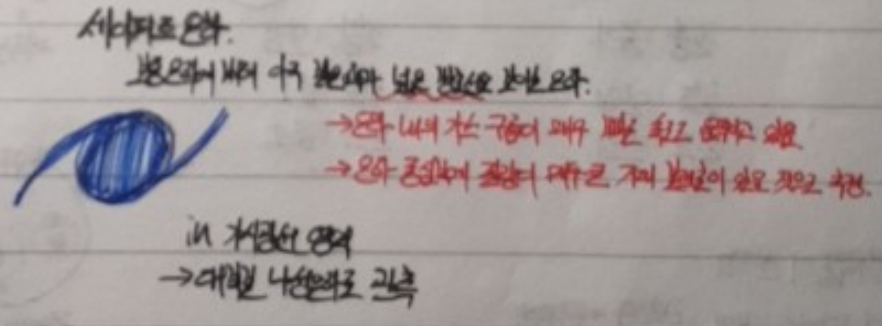 세이퍼트 은하.
보통은하에 비해 아주 밝은 핵과 넓은 방출선을 보이는 은하.
→은하 내의 가스 구름이 매우 빠른 속도로 움직이고 있음
→은하 중심부에 질량이 매우 큰 거대 블랙홀이 있을 것으로 추정.
in 가시광선 영역
→대부분 나선은하로 관측